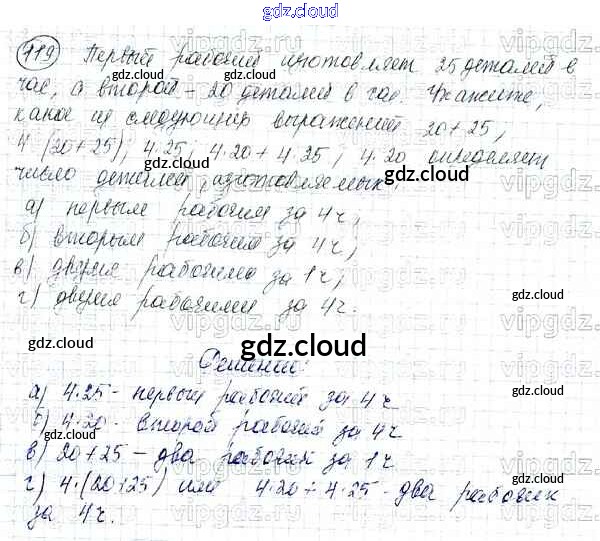 gdz.cloud
119 Первый рабочий изготовляет 25 деталей в
час, а второй – 20 деталей в час. Укажите,
какое из следующих выражений 20+25,
4·(20+25); 4·25; 4·20+4·25; 4·20 определяет
число деталей, изготовляемых:
а) первым рабочим за 4 ч;
б) вторым рабочим за 4 ч;
в) двумя рабочими за 1 ч;
г) двумя рабочими за 4 ч.
gdz.cloud
Решение:
а) 4·25 - первый рабочий за 4 ч
б) 4·20 - второй рабочий за 4 ч
в) 20+25 – два рабочих за 1 ч
г) 4·(20+25) или 4·20+4·25 - два рабочих
за 4 ч.